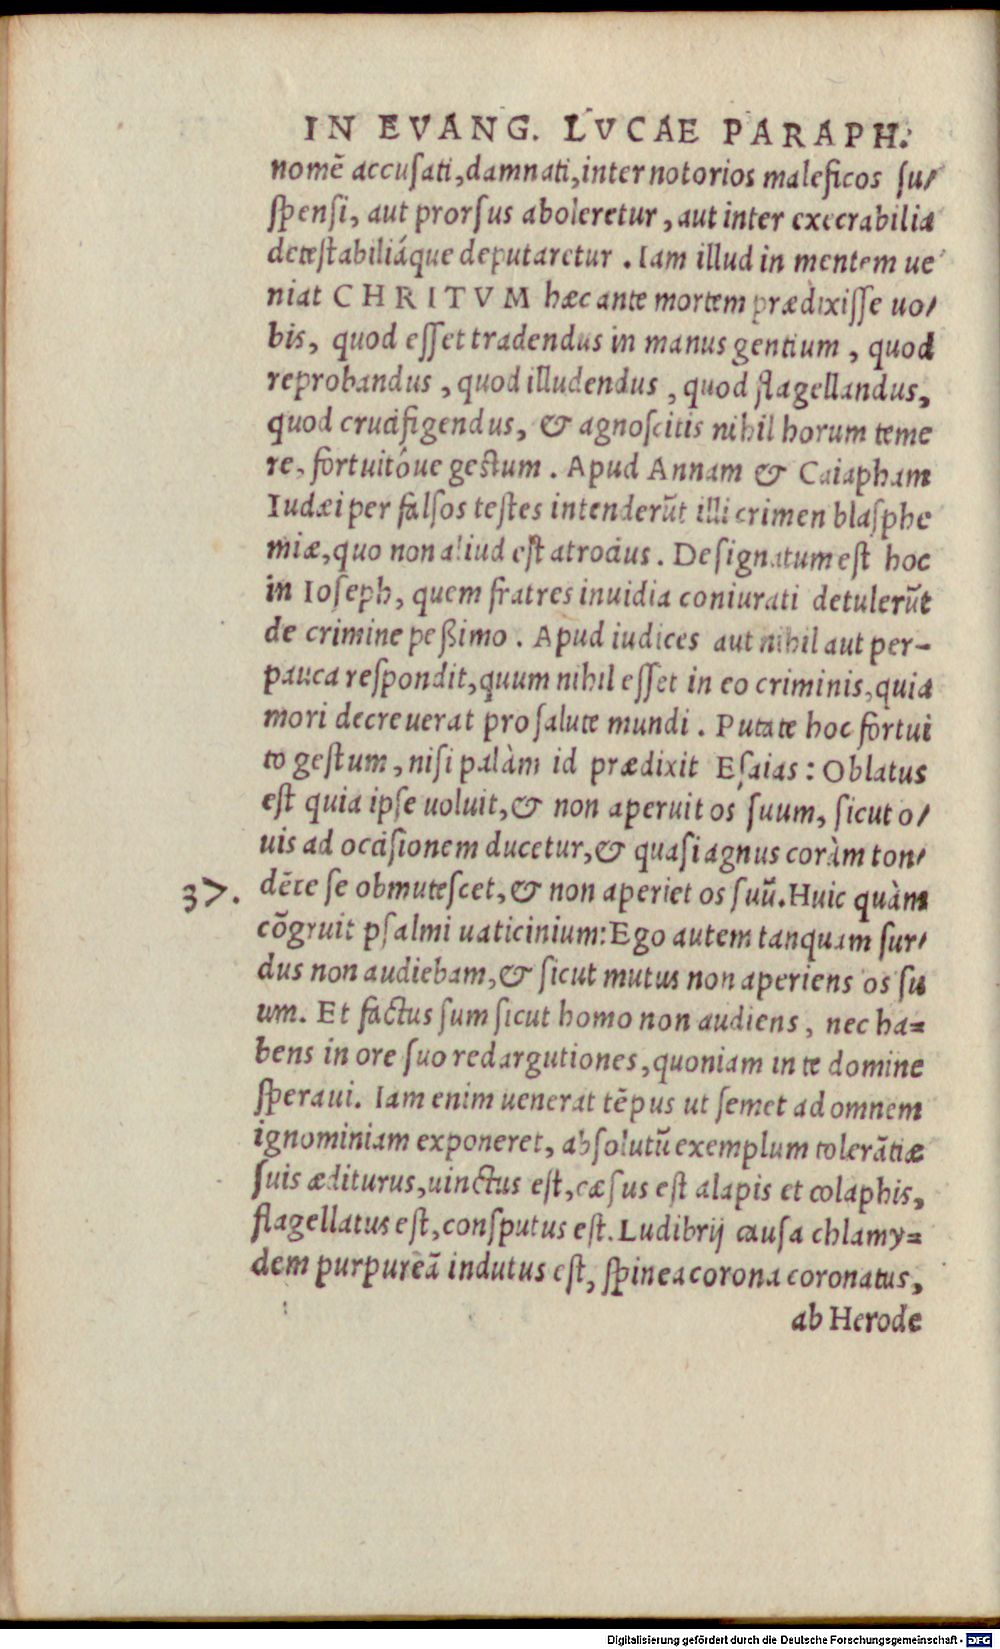 IN EVANG. LVCAE PARAPH.
nomē accuſati, damnati, inter notorios maleficos ſu/
ſpenſi, aut prorſus aboleretur, aut inter execrabilia
deteſtabiliáque deputaretur. Iam illud in mentem ue
niat CHRITVM hæc ante mortem prædixiſſe uo/
bis, quod eſſet tradendus in manus gentium, quod
reprobandus, quod illudendus, quod flagellandus,
quod crucifigendus, & agnoſcitis nihil horum teme
re, fortuitóue geſtum. Apud Annam & Caiapham
Iudæi per falſos teſtes intenderūt illi crimen blaſphe
miæ, quo non aliud eſt atrocius. Deſignatum eſt hoc
in Ioſeph, quem fratres inuidia coniurati detulerūt
de crimine peßimo. Apud iudices aut nihil aut per-
pauca reſpondit, quum nihil eſſet in eo criminis, quia
mori decreuerat pro ſalute mundi. Putate hoc fortui
to geſtum, niſi palàm id prædixit Eſaias: Oblatus
eſt quia ipſe uoluit, & non aperuit os ſuum, ſicut o/
uis ad occiſionem ducetur, & quaſi agnus coràm ton/
37. dēte ſe obmuteſcet, & non aperiet os ſuū. Huic quàm
cōgruit pſalmi uaticinium: Ego autem tanquam ſur/
dus non audiebam, & ſicut mutus non aperiens os ſu
um. Et factus ſum ſicut homo non audiens, nec ha=
bens in ore ſuo redargutiones, quoniam in te domine
ſperaui. Iam enim uenerat tēpus ut ſemet ad omnem
ignominiam exponeret, abſolutū exemplum tolerātiæ
ſuis æditurus, uinctus eſt, cæſus eſt alapis et colaphis,
flagellatus eſt, conſputus eſt. Ludibrij cauſa chlamy=
dem purpureā indutus eſt, ſpinea corona coronatus,
ab Herode
Digitalisierung gefördert durch die Deutsche Forschungsgemeinschaft - DFG